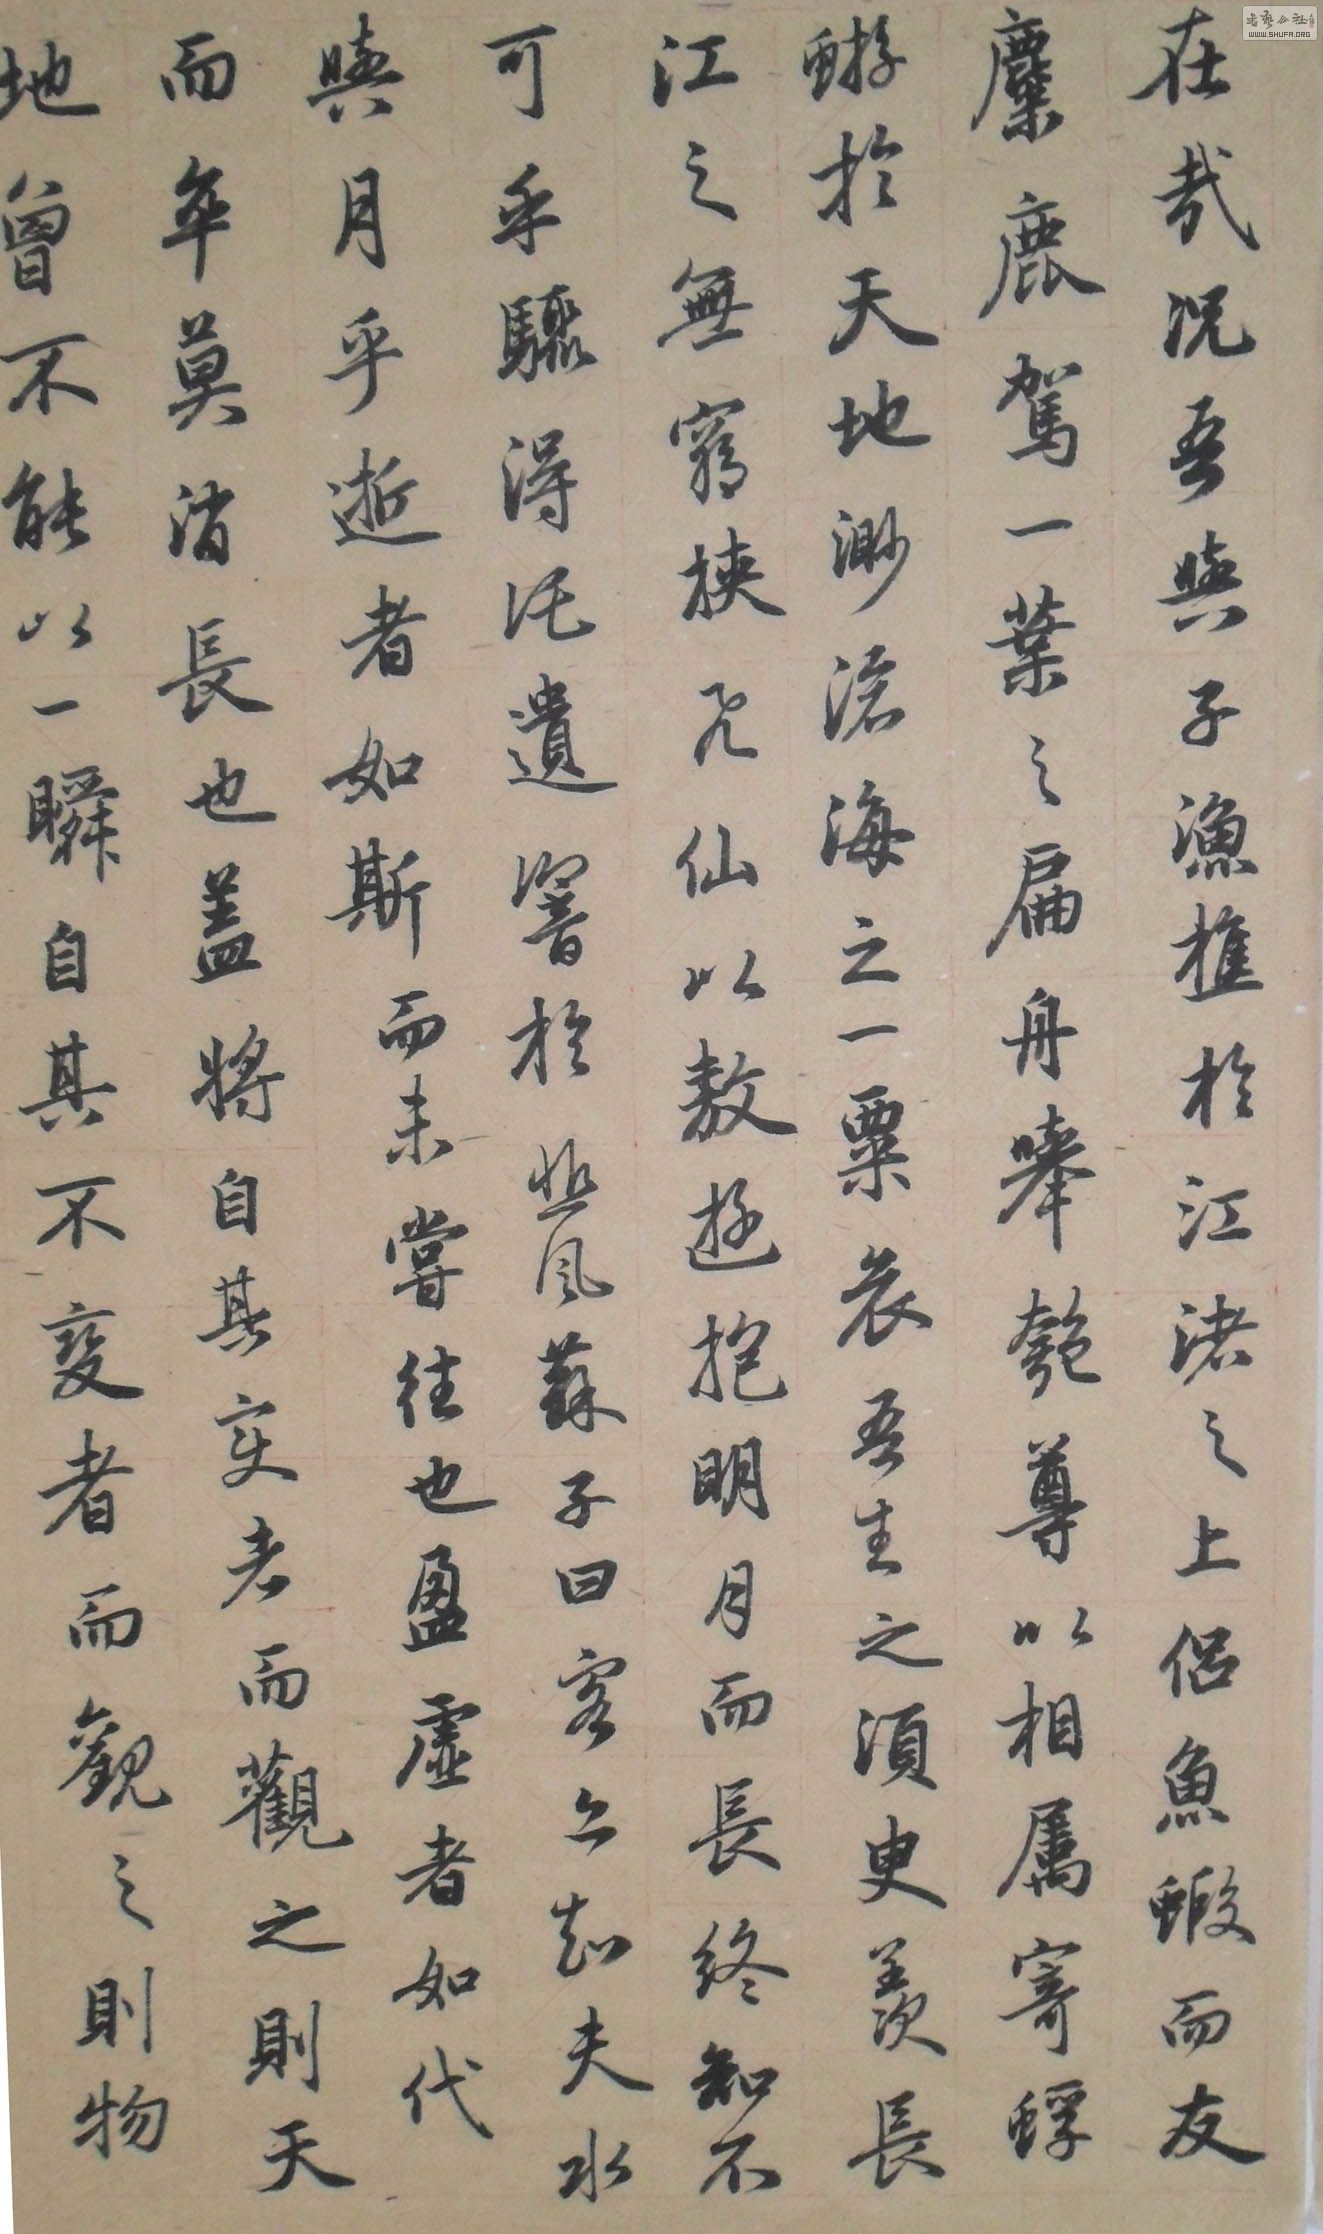 在哉况吾與子漁樵於江渚之上侣魚蝦而友
麋鹿駕一葉之扁舟舉匏尊以相属寄蜉
蝣於天地渺滄海之一粟哀吾生之須臾羡長
江之無窮挾飛仙以敖遊抱明月而長終知不
可乎驟得托遺響於悲風蘇子曰客亦知夫水
與月乎逝者如斯而未嘗往也盈虛者如代
而卒莫消長也盖將自其变者而觀之則天
地曾不能以一瞬自其不變者而觀之則物
WWW.SHUFA.ORG